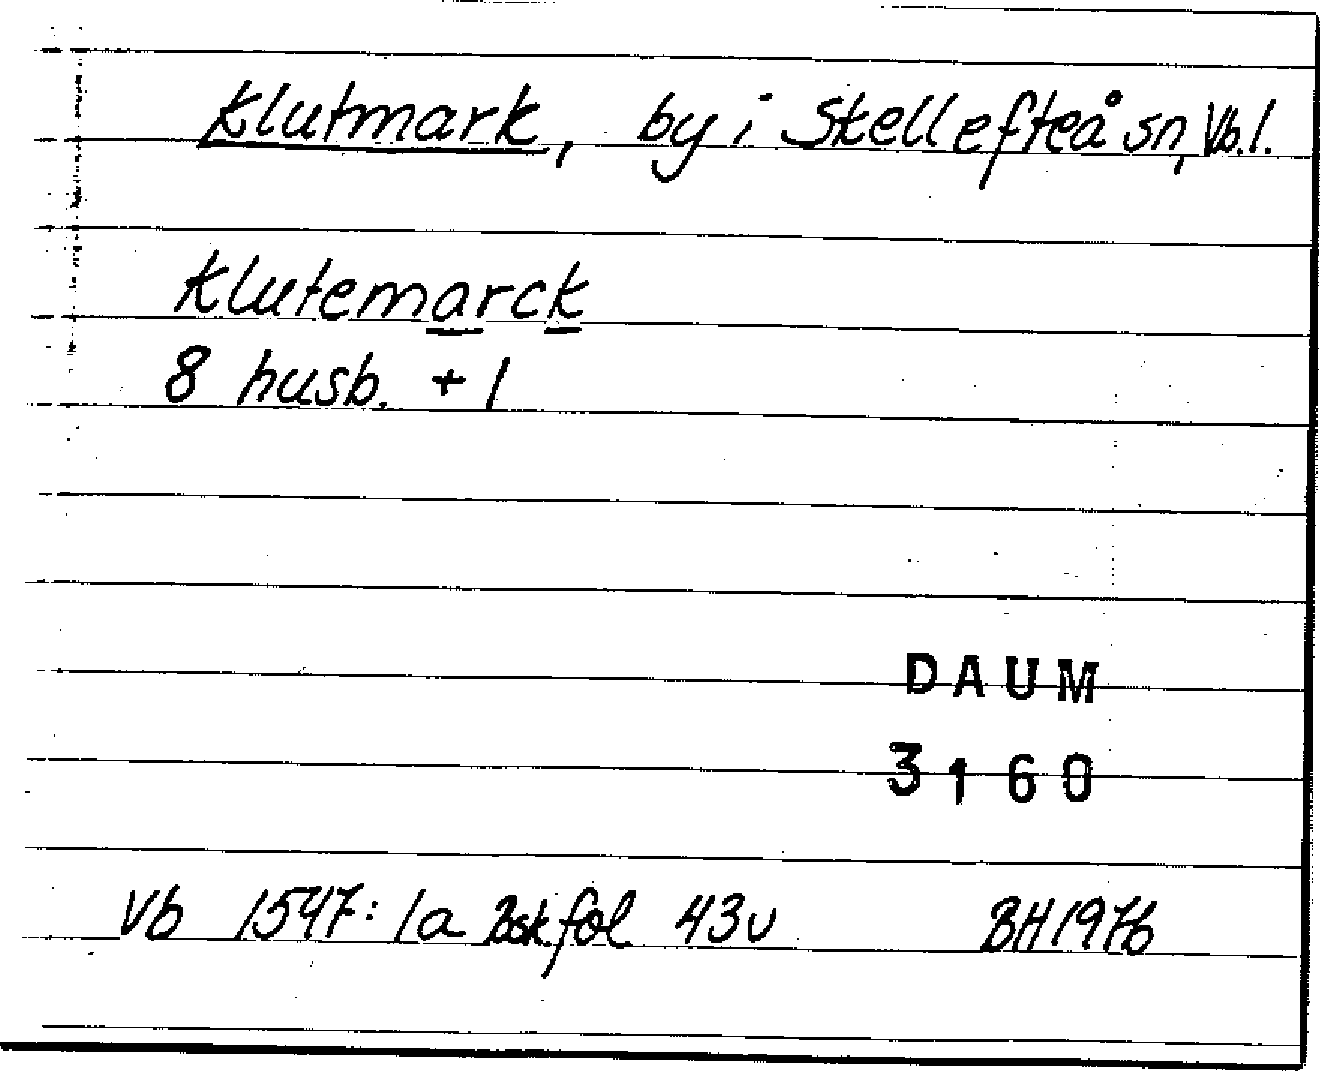 Klutmark, by i Skellefteå sn, Vb. l.
Klutemarck
8 husb. + 1
DAUM
3160
Vb 1547: 1a fol 43v BH 1976